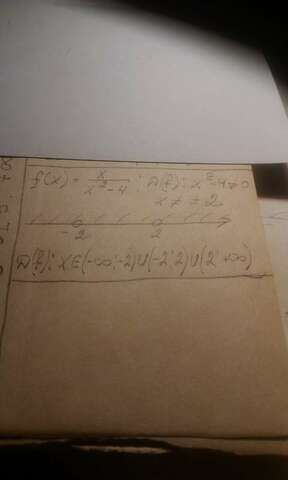 f(x) = x/(x²-4) ; D(f): x²-4≠0
x ≠ ±2
-2 2
D(f): x∈(-∞;-2)∪(-2;2)∪(2;+∞)